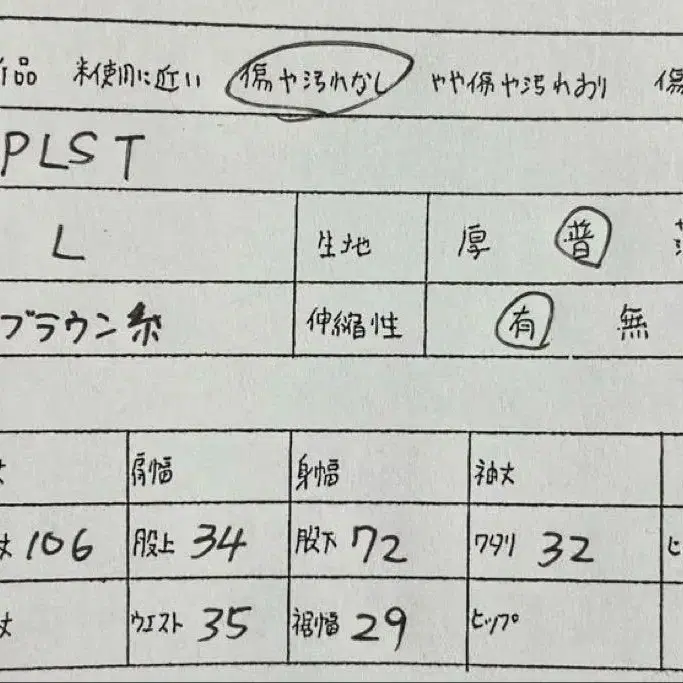 新品 未使用に近い 傷や汚れなし やや傷や汚れあり 傷
PLST
L 生地 厚 普
ブラウン系 伸縮性 有 無
丈 肩幅 身幅 袖丈
丈 106 股上 34 股下 72 ワタリ 32 ヒ
丈 ウエスト 35 裾幅 29 ヒップ